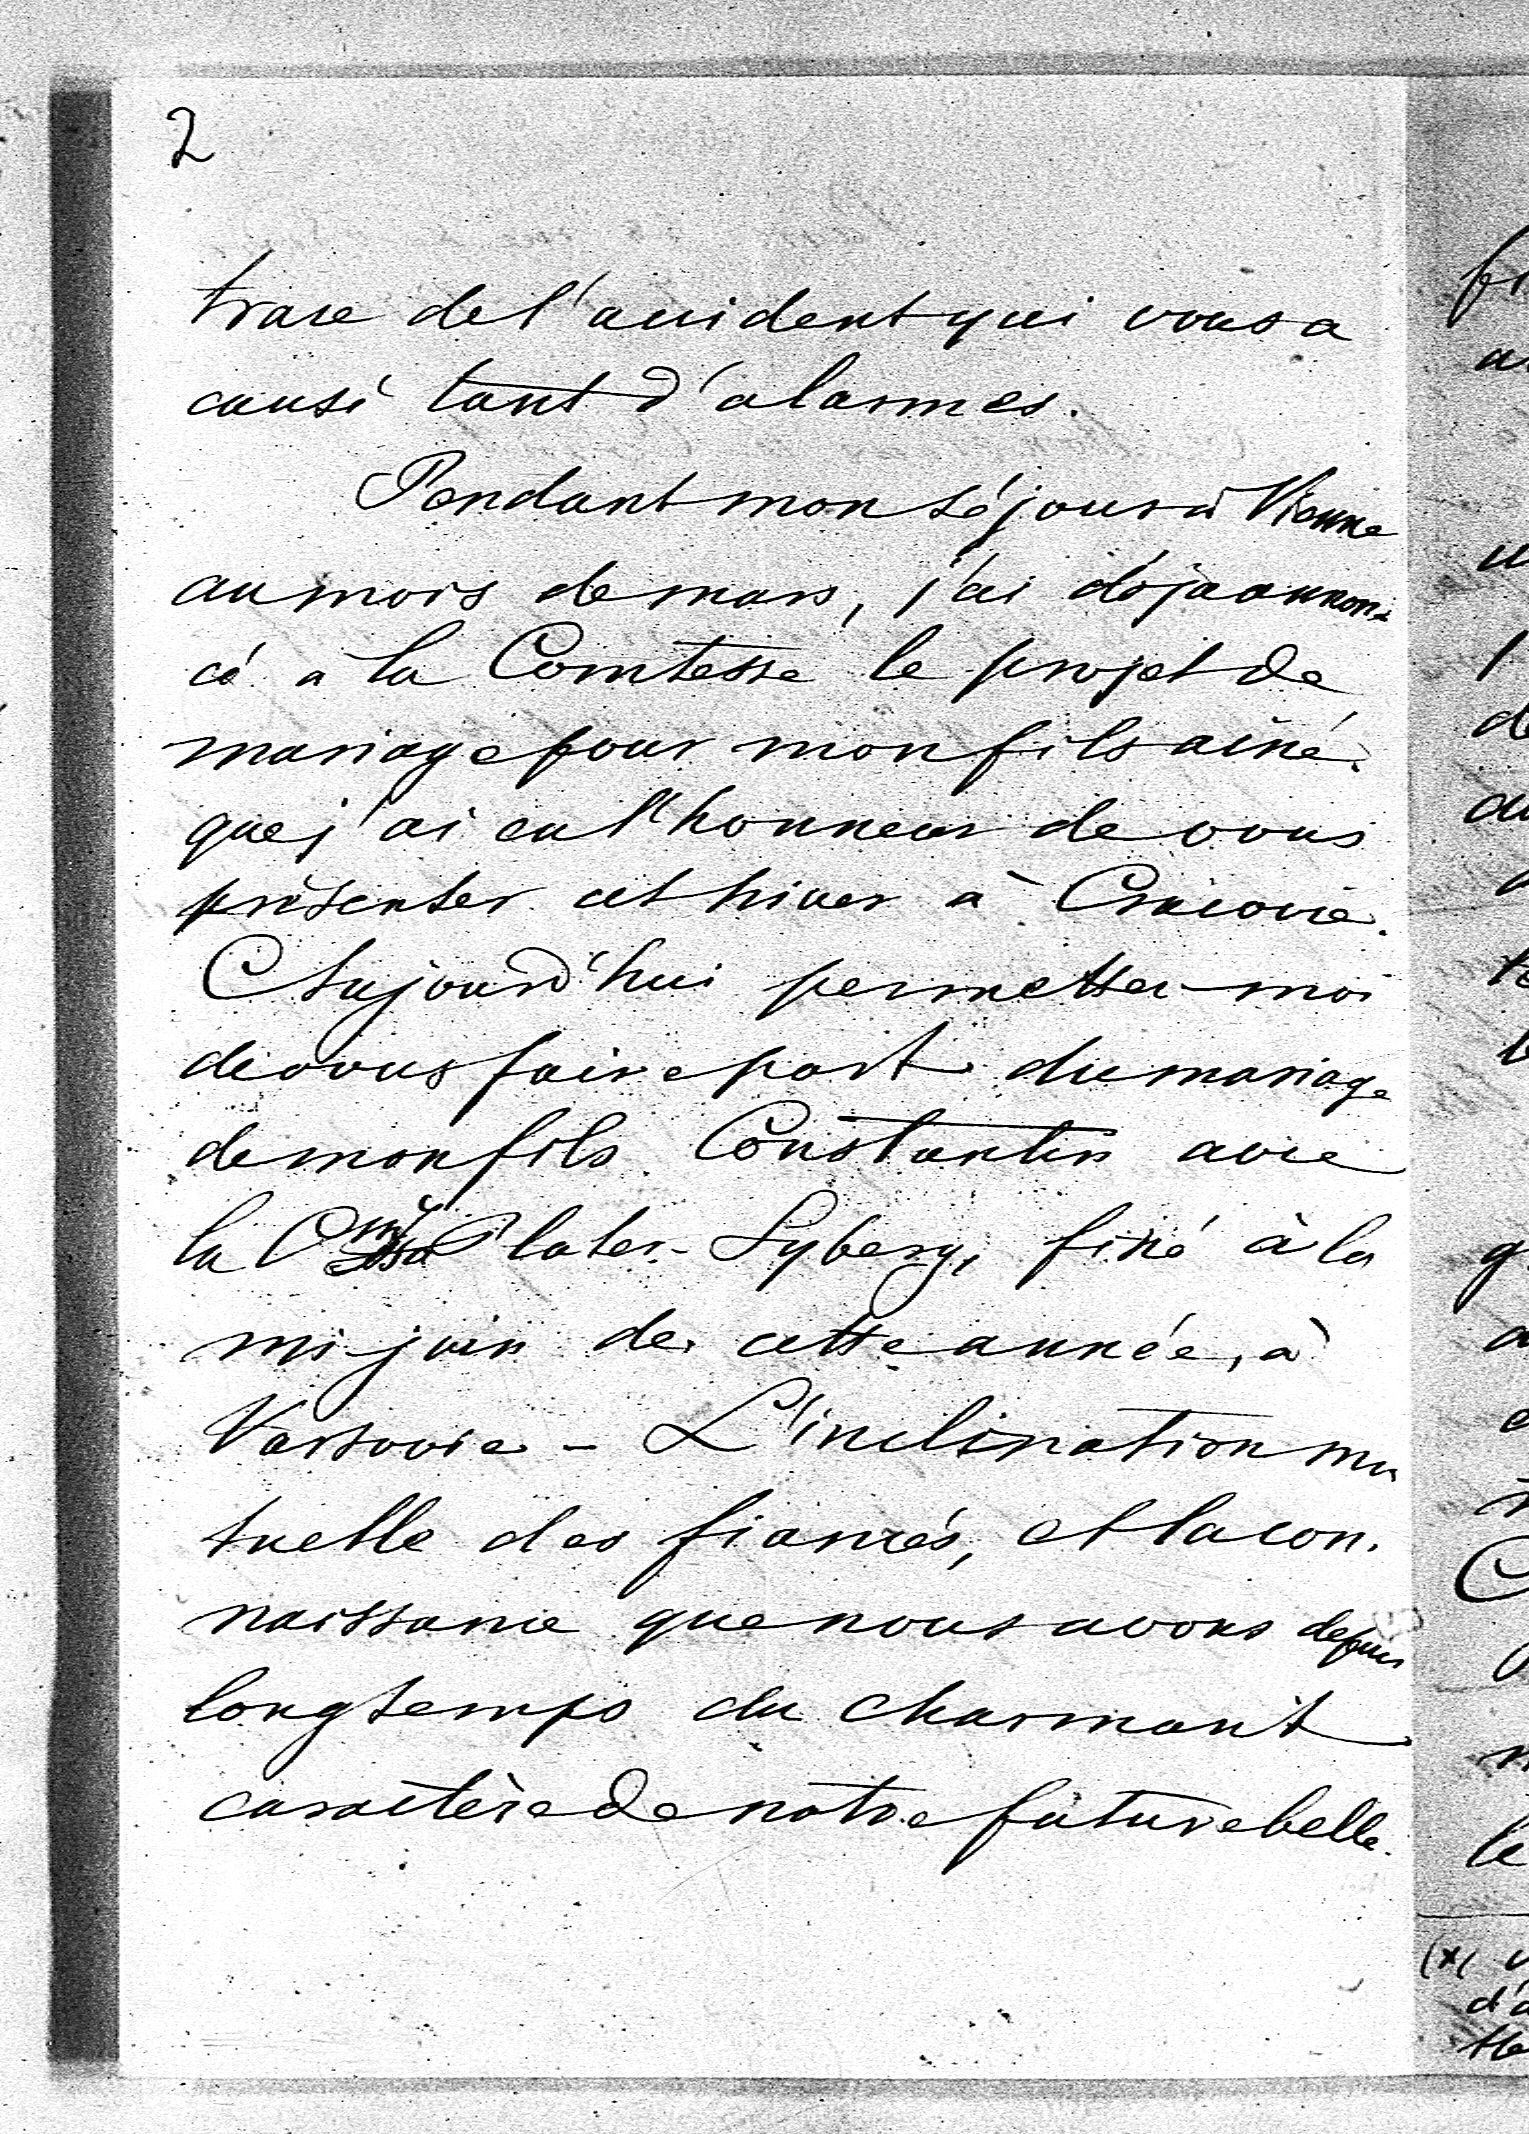 2
trace de l'accident qui vous a
causé tant d'alarmes.
Pendant mon séjour à Vienne
au mois de mars, j'ai déja annon-
cé a la Comtesse le projet de
mariage pour mon fils ainé.
que j'ai eu l'honneur de vous
présenter cet hiver a Cracovie.
Aujourd'hui permettez-moi
de vous faire part du mariage
de mon fils Constantin avec
la Plater-Syberg, fixé à la
mi-juin de cette année, à
Varsovie - L'inclination mu
tuelle des fiancés, et la con.
naissance que nous avons depuis
longtemps du charmant
caractère de notre future belle.